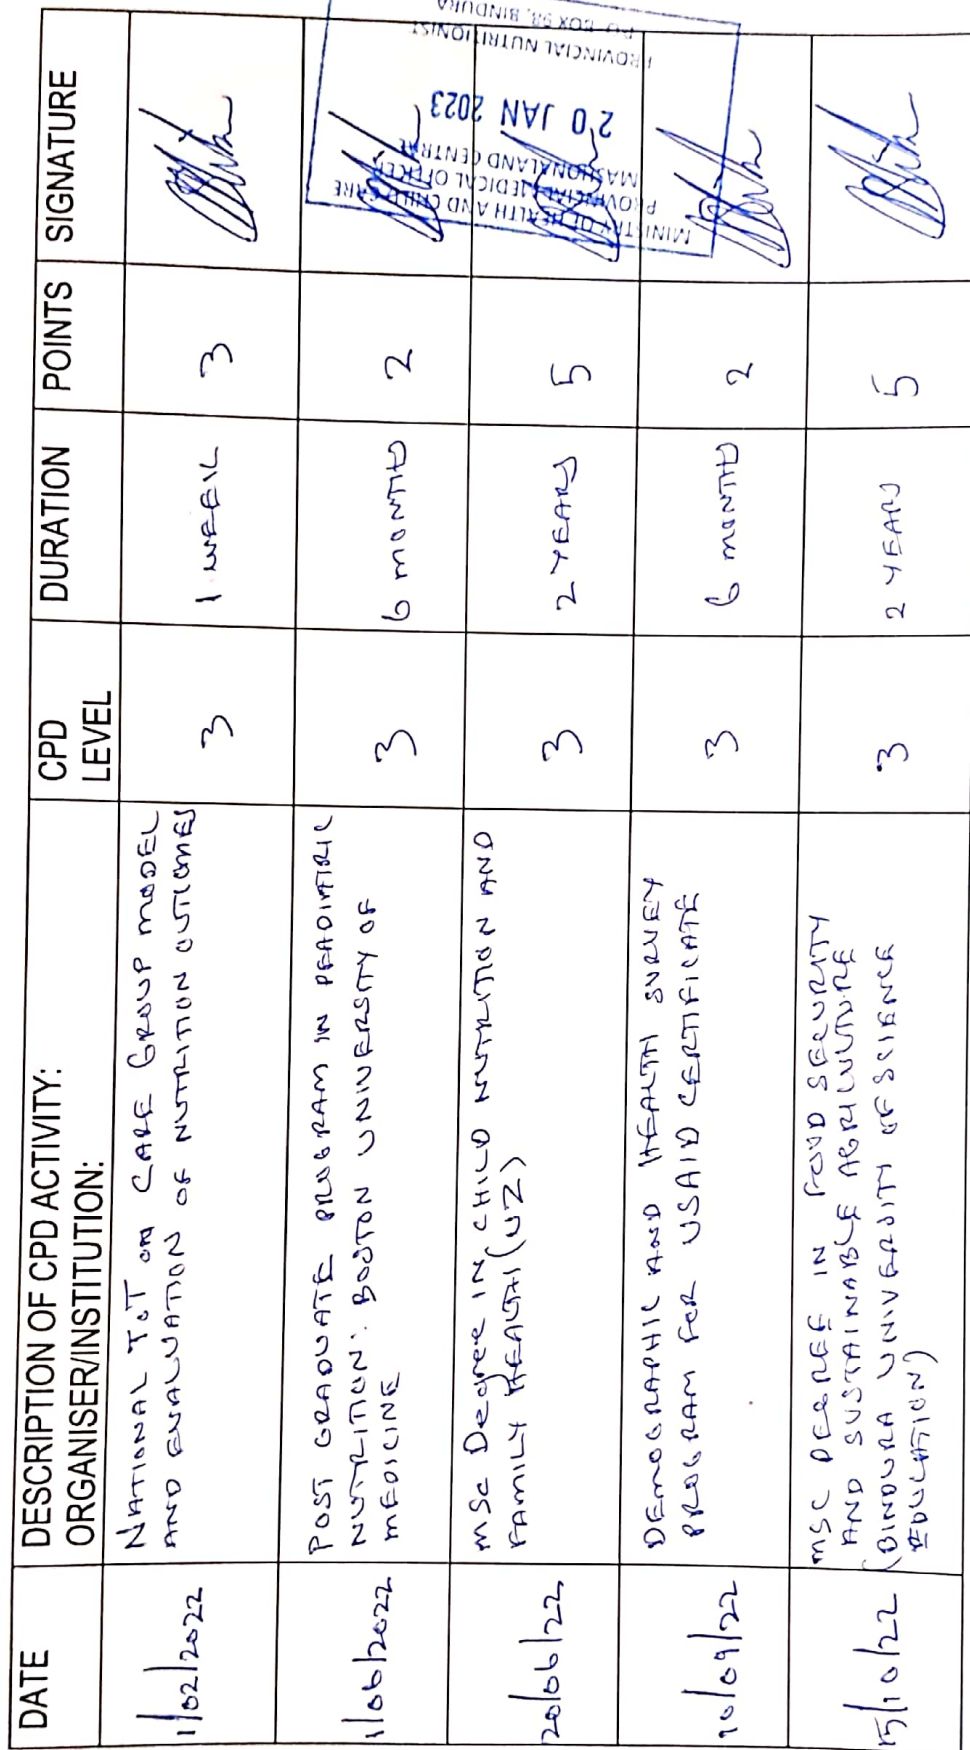 DATE
DESCRIPTION OF CPD ACTIVITY:
ORGANISER/INSTITUTION:
CPD
LEVEL
DURATION
POINTS
SIGNATURE
1/02/2022
NATIONAL ToT on CARE GROUP MODEL
AND EVALUATION OF NUTRITION OUTCOMES
3
1 WEEK
3
1/06/2022
POST GRADUATE PROGRAM IN PEADIATRIC
NUTRITION: BOSTON UNIVERSITY OF
MEDICINE
3
6 MONTHS
2
20/06/22
MSc Degree IN CHILD NUTRITION AND
FAMILY HEALTH (UZ)
3
2 YEARS
5
10/09/22
DEMOGRAPHIC AND HEALTH SURVEY
PROGRAM FOR USAID CERTIFICATE
3
6 MONTHS
2
15/10/22
MSC DEGREE IN FOOD SECURITY
AND SUSTAINABLE AGRICULTURE
(BINDURA UNIVERSITY OF SCIENCE
EDUCATION)
3
2 YEARS
5
MINISTRY OF HEALTH AND CHILD CARE
PROVINCIAL MEDICAL OFFICER
MASHONALAND CENTRAL
20 JAN 2023
PROVINCIAL NUTRITIONIST
P.O. BOX 98, BINDURA